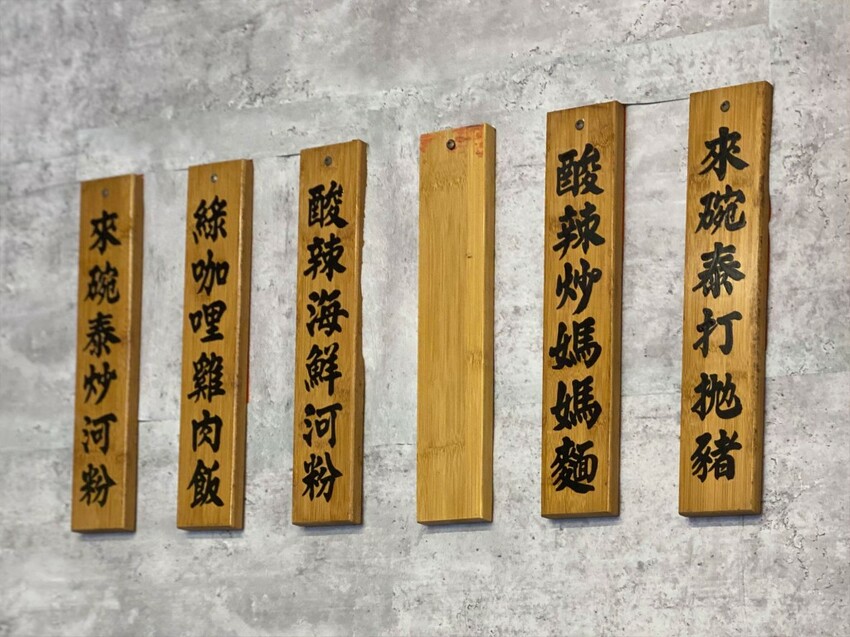 來碗泰打拋豬
酸辣炒媽媽麵
酸辣海鮮河粉
綠咖哩雞肉飯
來碗泰炒河粉